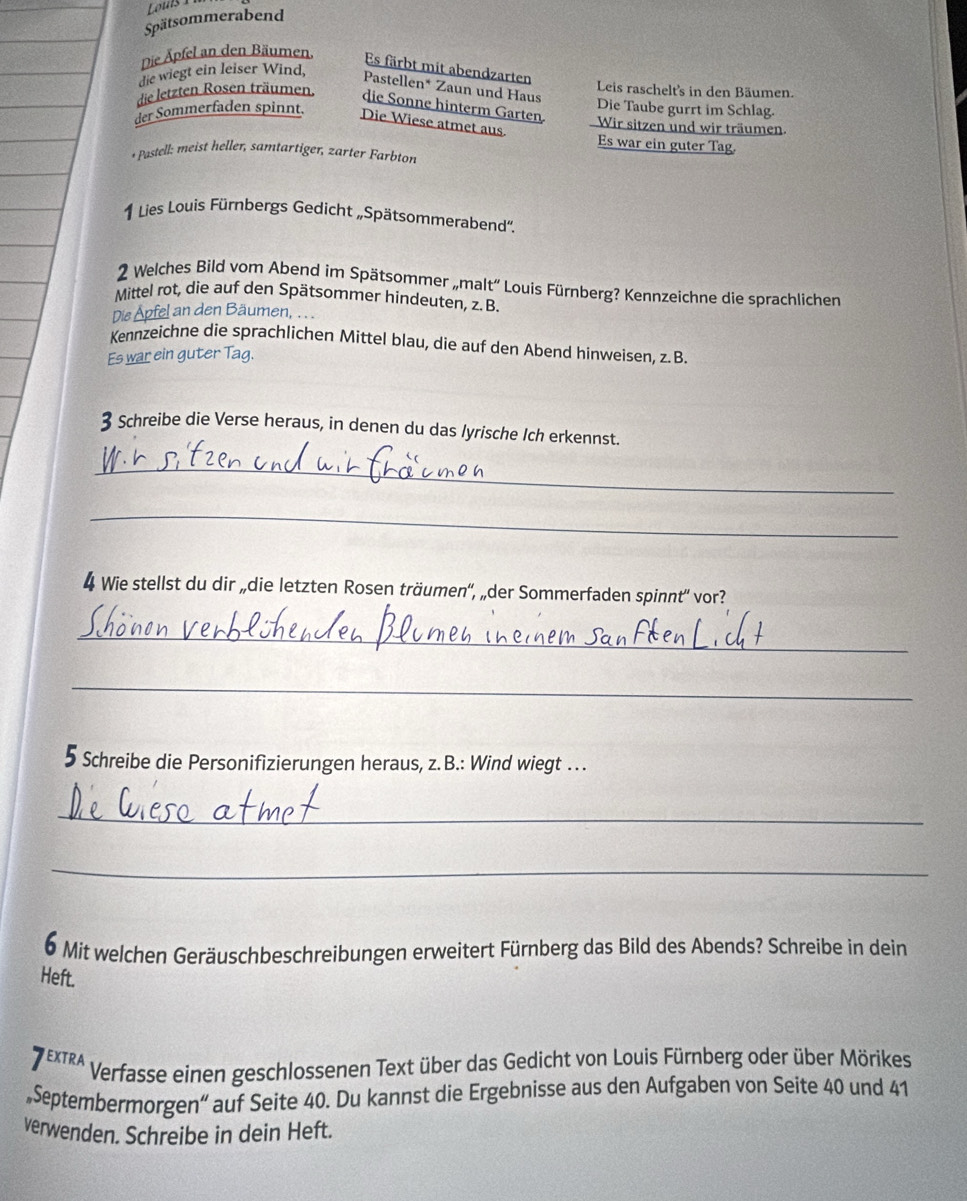 Louis
Spätsommerabend
Die Äpfel an den Bäumen,
die wiegt ein leiser Wind,
die letzten Rosen träumen,
der Sommerfaden spinnt.
Es färbt mit abendzarten
Pastellen* Zaun und Haus
die Sonne hinterm Garten.
Die Wiese atmet aus.
Leis raschelt's in den Bäumen.
Die Taube gurrt im Schlag.
Wir sitzen und wir träumen.
Es war ein guter Tag.
* Pastell: meist heller, samtartiger, zarter Farbton
1 Lies Louis Fürnbergs Gedicht „Spätsommerabend“.
2 Welches Bild vom Abend im Spätsommer „malt“ Louis Fürnberg? Kennzeichne die sprachlichen
Mittel rot, die auf den Spätsommer hindeuten, z. B.
Die Äpfel an den Bäumen, ...
Kennzeichne die sprachlichen Mittel blau, die auf den Abend hinweisen, z. B.
Es war ein guter Tag.
3 Schreibe die Verse heraus, in denen du das lyrische Ich erkennst.
Wir sitzen und wir träumen
4 Wie stellst du dir „die letzten Rosen träumen“, „der Sommerfaden spinnt“ vor?
Schönen verblühenden Blumen in einem sanften Licht
5 Schreibe die Personifizierungen heraus, z. B.: Wind wiegt ...
Die Wiese atmet
6 Mit welchen Geräuschbeschreibungen erweitert Fürnberg das Bild des Abends? Schreibe in dein
Heft.
7 EXTRA Verfasse einen geschlossenen Text über das Gedicht von Louis Fürnberg oder über Mörikes
„Septembermorgen“ auf Seite 40. Du kannst die Ergebnisse aus den Aufgaben von Seite 40 und 41
verwenden. Schreibe in dein Heft.